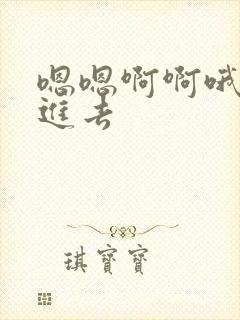 嗯嗯啊啊哦
進去
琪寶寶